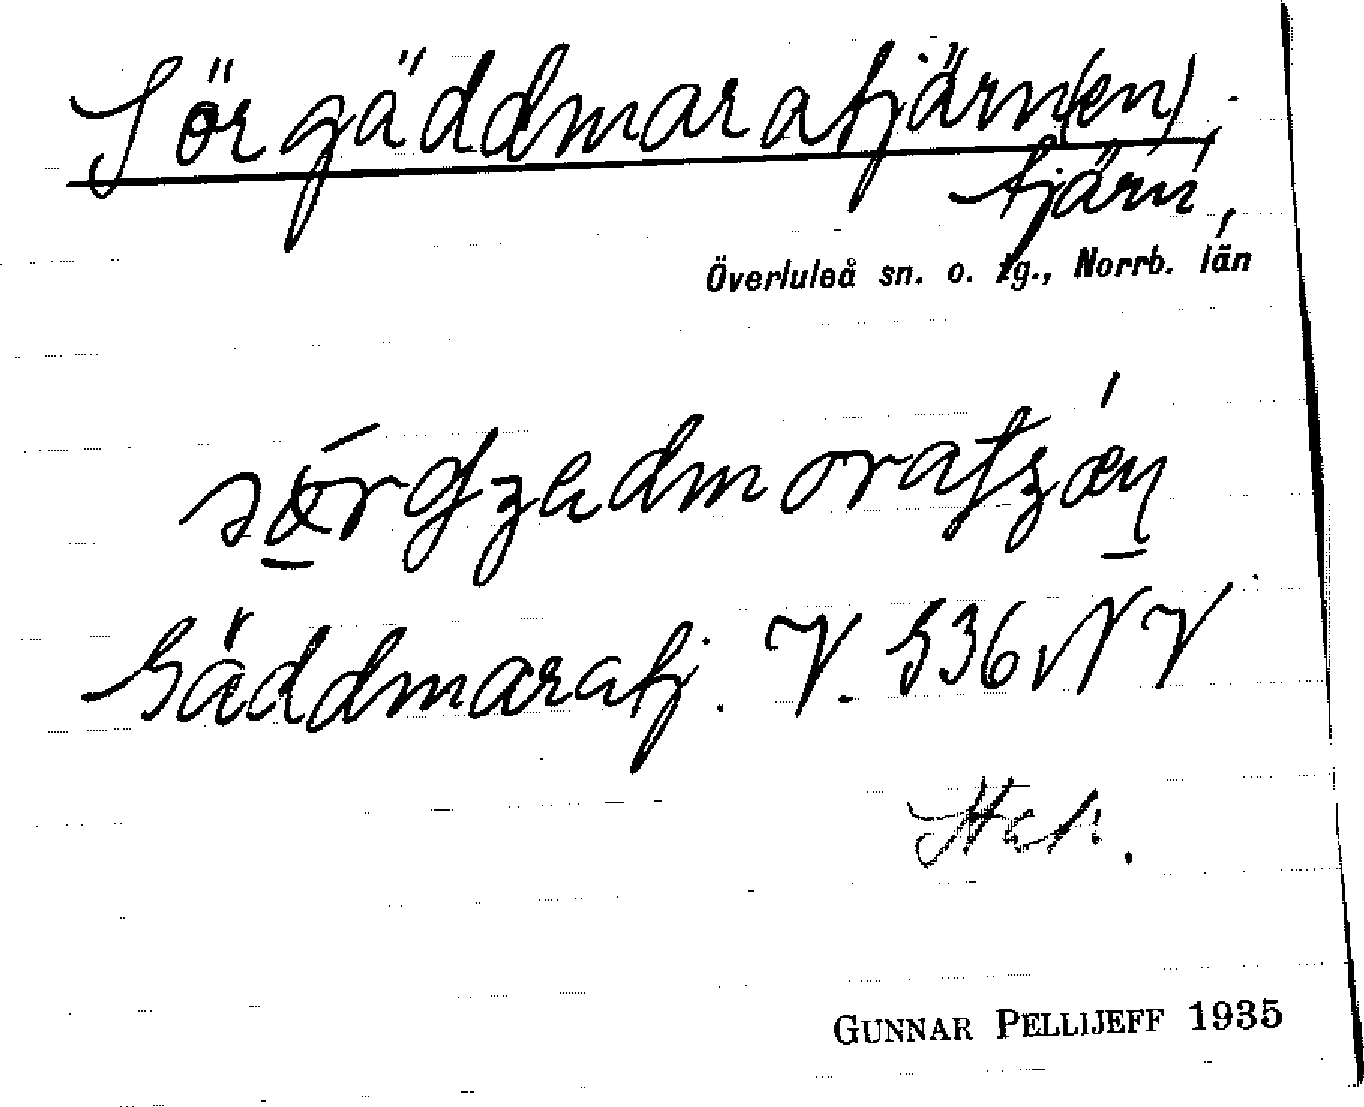 Sörgäddmaratjärn(en),
tjärn,
Överluleå sn. o. tg., Norrb. län
Gäddmaratj. V. 536 NV
GUNNAR PELLIJEFF 1935